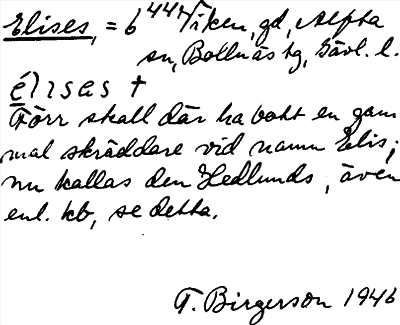 Elises, = b 444 Viken, gd, Alpha
sn, Bollnäs tg, Gävl. l.
élisas †
Förr skall där ha bott en gam
mal skräddare vid namn Elis;
nu kallas den Hedlunds, även
enl. kb, se detta.
T. Birgerson 1946